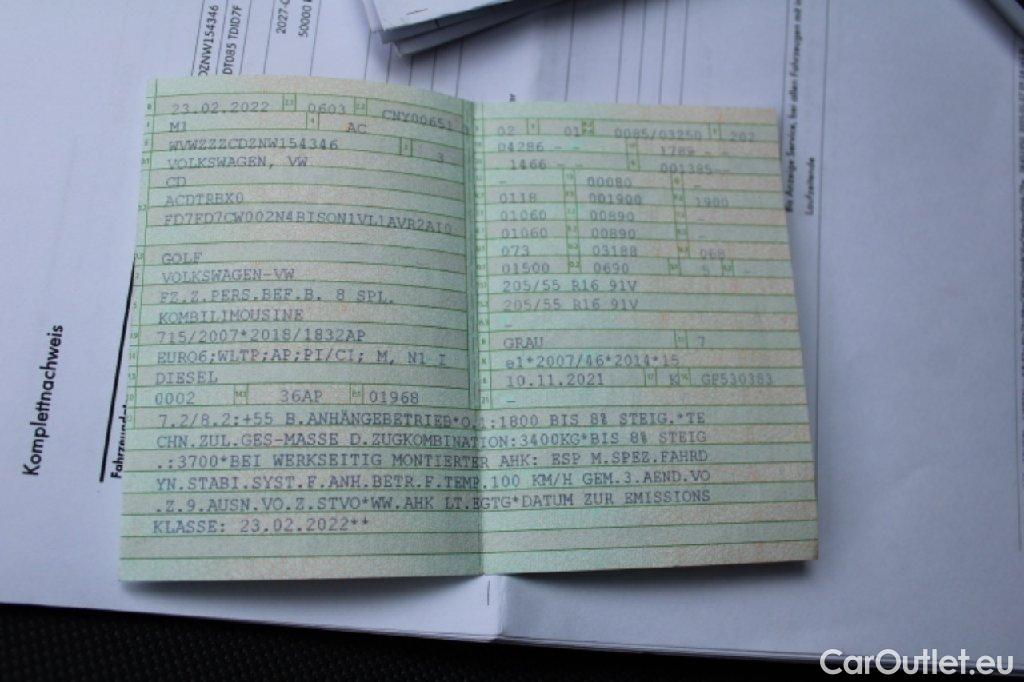 DZNW154346
DT085 TDID7F
2027-0
50000
23.02.2022 0603 CNY00651
M1 AC
WVWZZZCDZNW154346 3
VOLKSWAGEN, VW
CD
ACDTRBX0
FD7FD7CW002N4BISON1VL1AVR2A10
GOLF
VOLKSWAGEN-VW
FZ.Z.PERS.BEF.B. 8 SPL.
KOMBILIMOUSINE
715/2007*2018/1832AP
EURO6;WLTP;AP;PI/CI; M, N1 I
DIESEL
0002 36AP 01968
02 01 0085/03250 202
04286 - - 1789 - -
1466 - - 001385--
- 00080 -
0118 001900 1900
01060 00890 -
01060 00890 -
073 03188 068
01500 0690 5 -
205/55 R16 91V
205/55 R16 91V
-
GRAU 7
e1*2007/46*2014*15
10.11.2021 K GF530383
-
7.2/8.2:+55 B.ANHÄNGEBETRIEB*O.1:1800 BIS 8% STEIG.*TE
CHN.ZUL.GES-MASSE D.ZUGKOMBINATION:3400KG*BIS 8% STEIG
.:3700*BEI WERKSEITIG MONTIERTER AHK: ESP M.SPEZ.FAHRD
YN.STABI.SYST.F.ANH.BETR.F.TEMP.100 KM/H GEM.3.AEND.VO
.Z.9.AUSN.VO.Z.STVO*WW.AHK LT.EGTG*DATUM ZUR EMISSIONS
KLASSE: 23.02.2022**
Komplettnachweis
Anzeige Service, bei allen Fahrzeugen mit
Laufzeitende
CarOutlet.eu